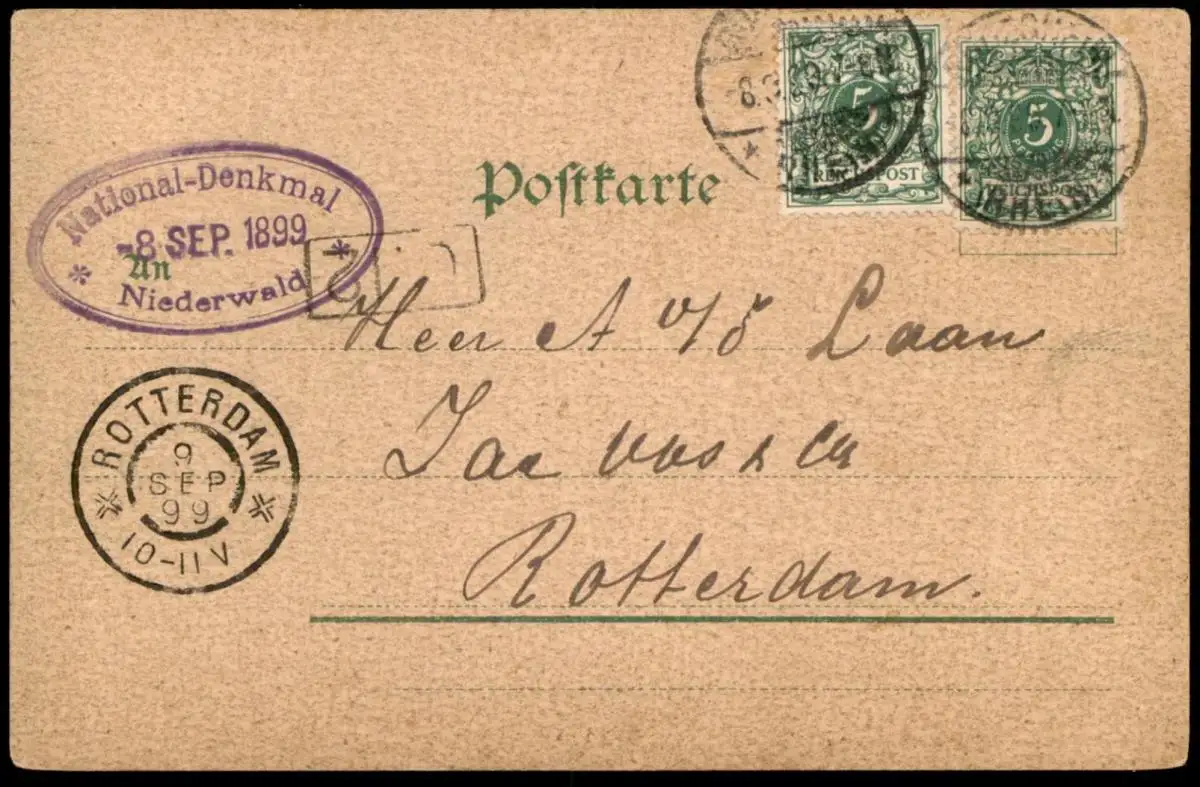 Postkarte
5
PFENNIG
REICHSPOST
5
PFENNIG
REICHSPOST
National-Denkmal
-8 SEP. 1899
Niederwald
An
Heer A v/d Laan
Jac vos & Co
Rotterdam.
ROTTERDAM
9
SEP
99
10-11 V